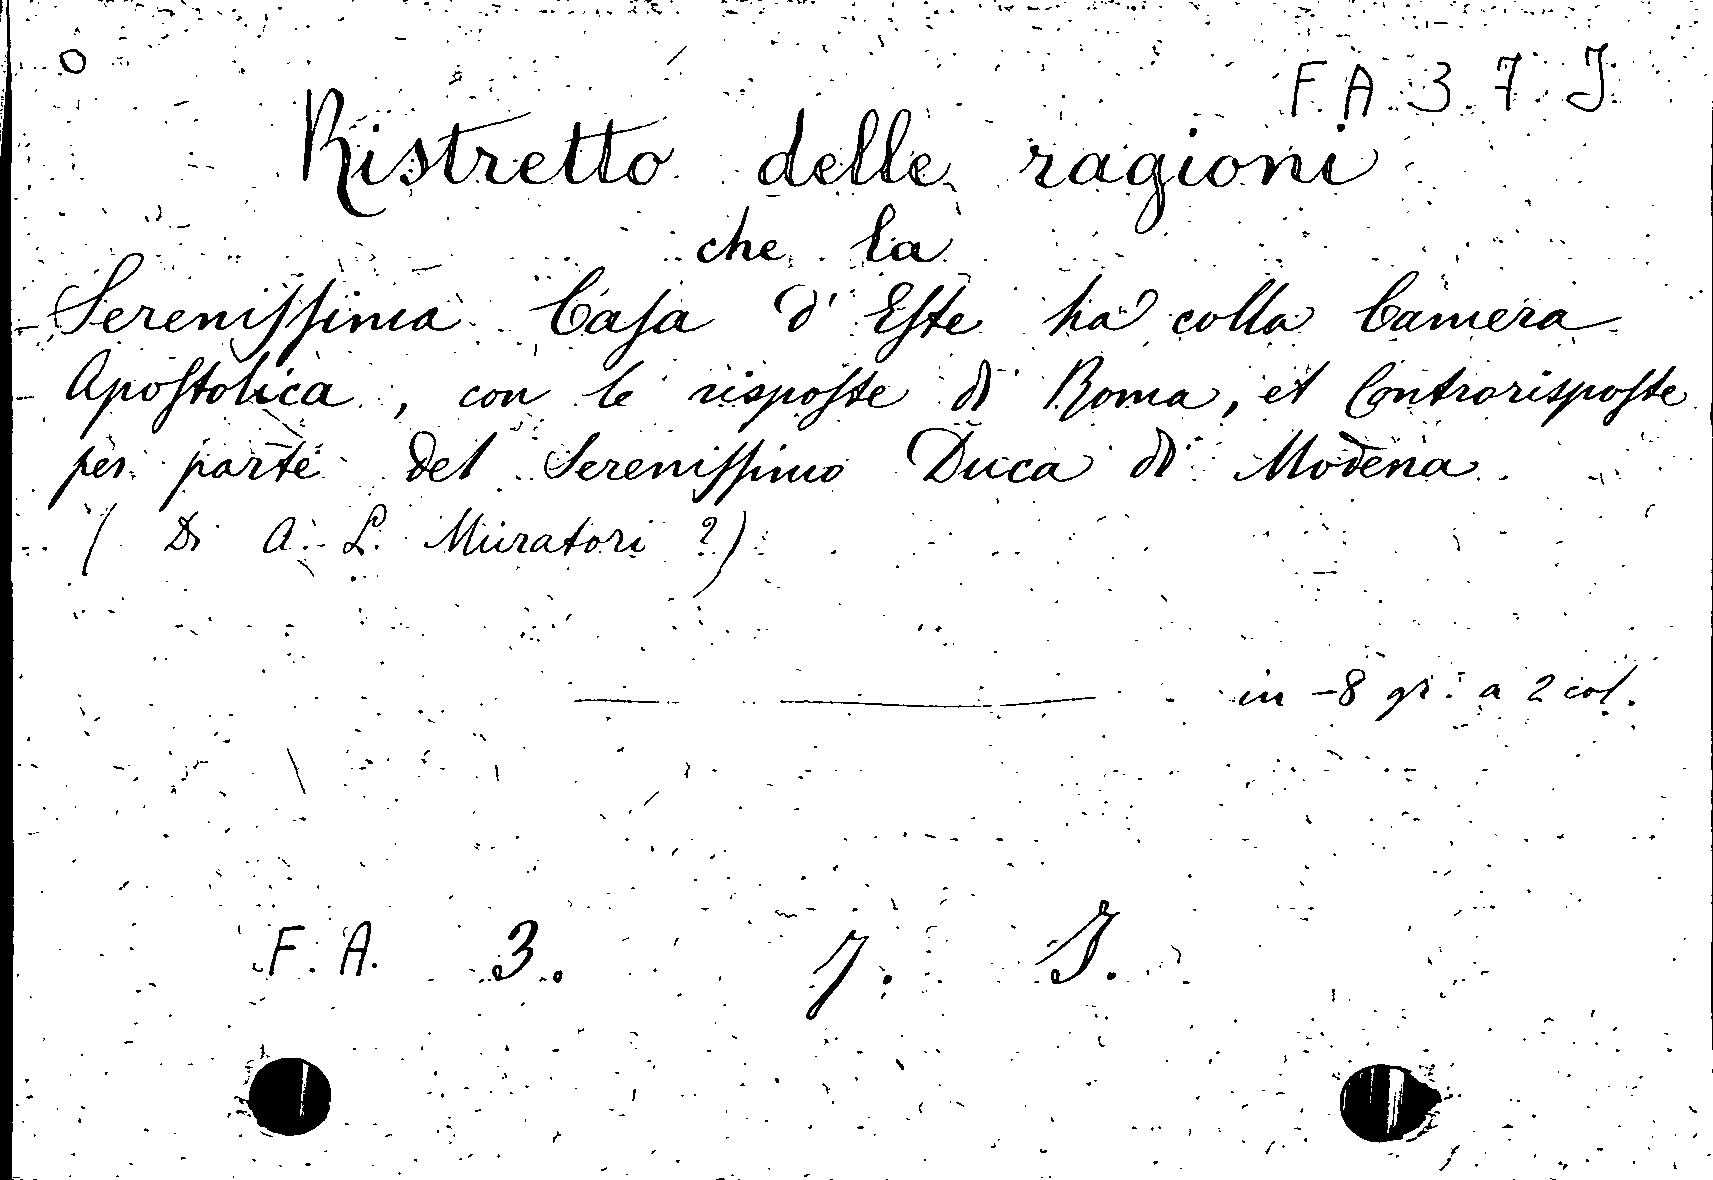 F. A. 3. 7. J
Ristretto delle ragioni
che la
Sereniſſima Caſa d'Eſte ha colla Camera
Apoſtolica, con le riſpoſte di Roma, et Controriſpoſte
per parte del Sereniſſimo Duca di Modena.
( Di A. L. Muratori ?)
in -8 gr. a 2 col.
F. A. 3. 7. J.